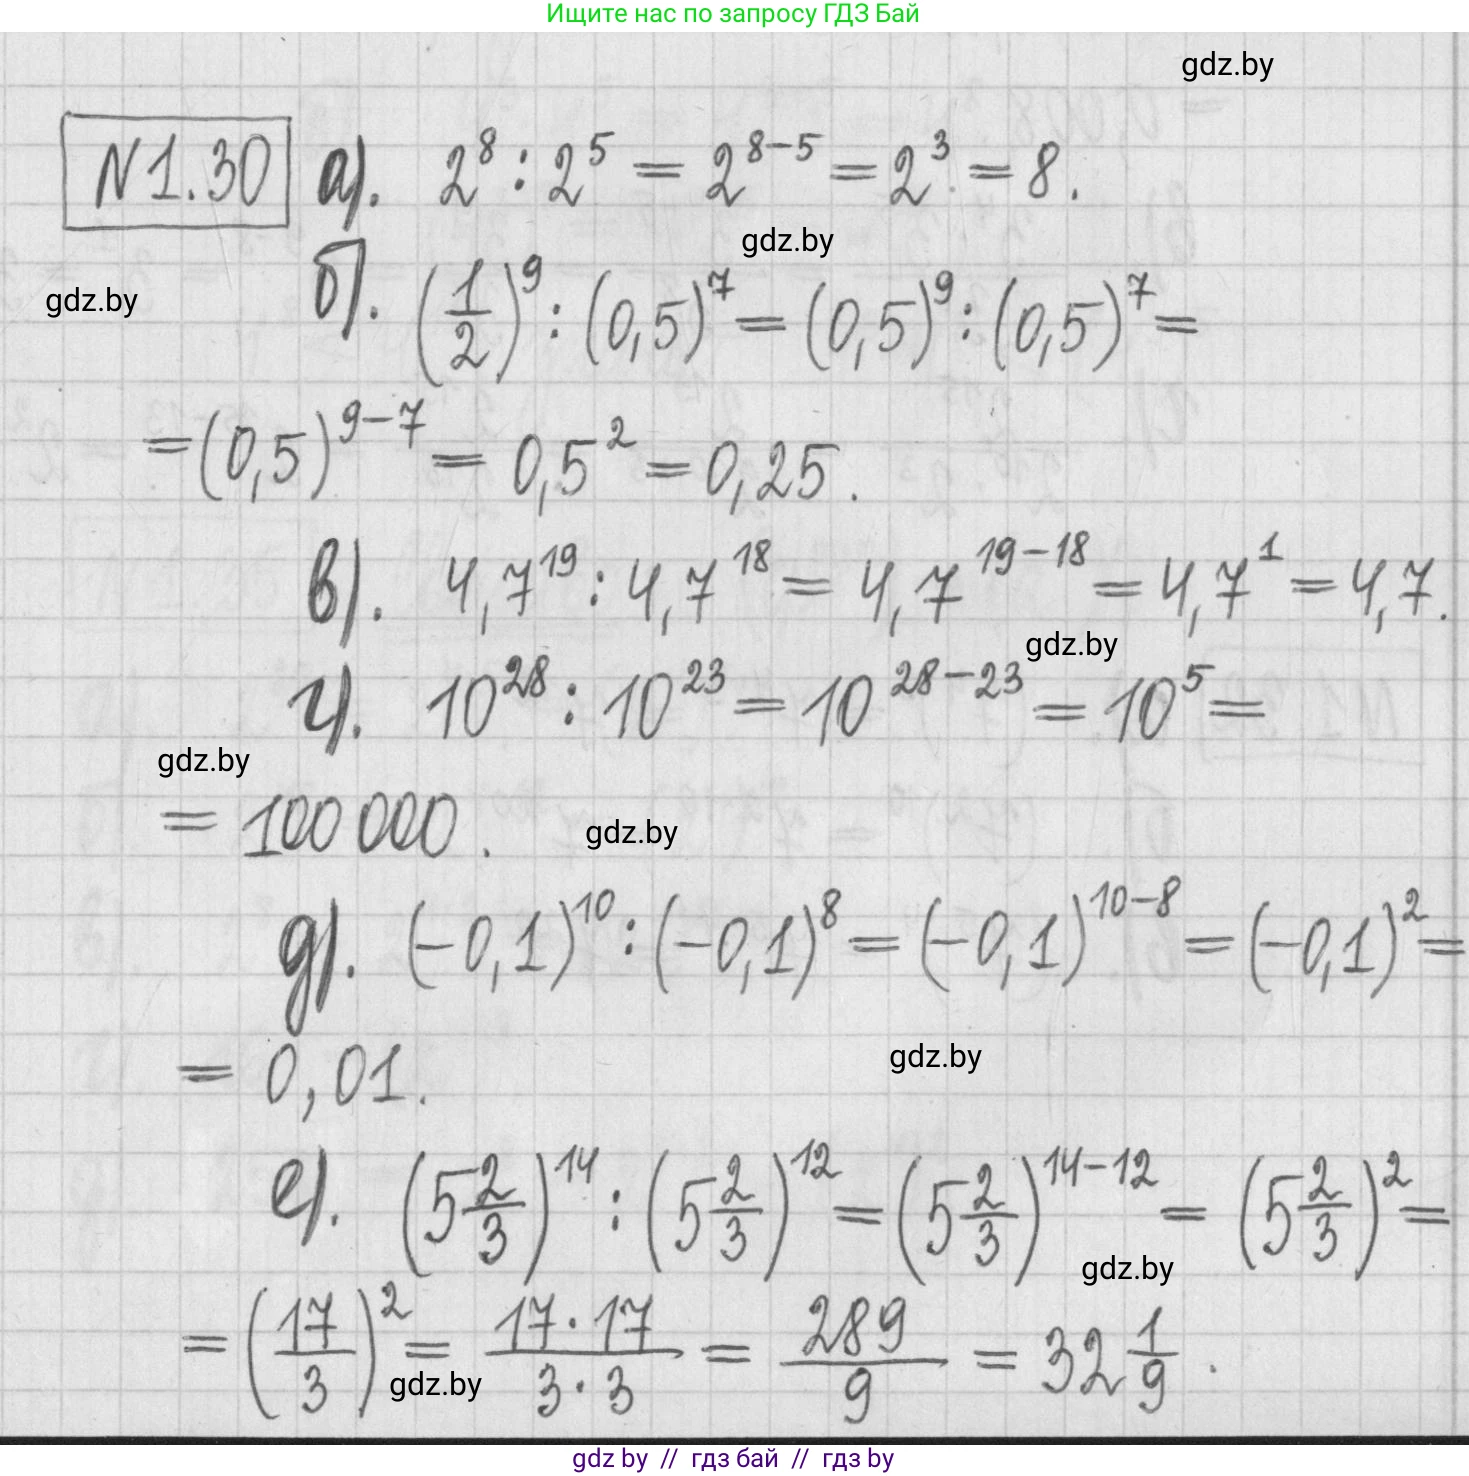 Ищите нас по запросу ГДЗ Бай
gdz.by
№1.30 а). 2^8 : 2^5 = 2^{8-5} = 2^3 = 8.
gdz.by
gdz.by
б). (1/2)^9 : (0,5)^7 = (0,5)^9 : (0,5)^7 =
= (0,5)^{9-7} = 0,5^2 = 0,25.
в). 4,7^{19} : 4,7^{18} = 4,7^{19-18} = 4,7^1 = 4,7.
gdz.by
г). 10^{28} : 10^{23} = 10^{28-23} = 10^5 =
gdz.by
= 100 000.
gdz.by
д). (-0,1)^{10} : (-0,1)^8 = (-0,1)^{10-8} = (-0,1)^2 =
= 0,01.
gdz.by
е). (5 2/3)^{14} : (5 2/3)^{12} = (5 2/3)^{14-12} = (5 2/3)^2 =
gdz.by
= (17/3)^2 = 17·17/3·3 = 289/9 = 32 1/9.
gdz.by
gdz by // гдз бай // гдз by